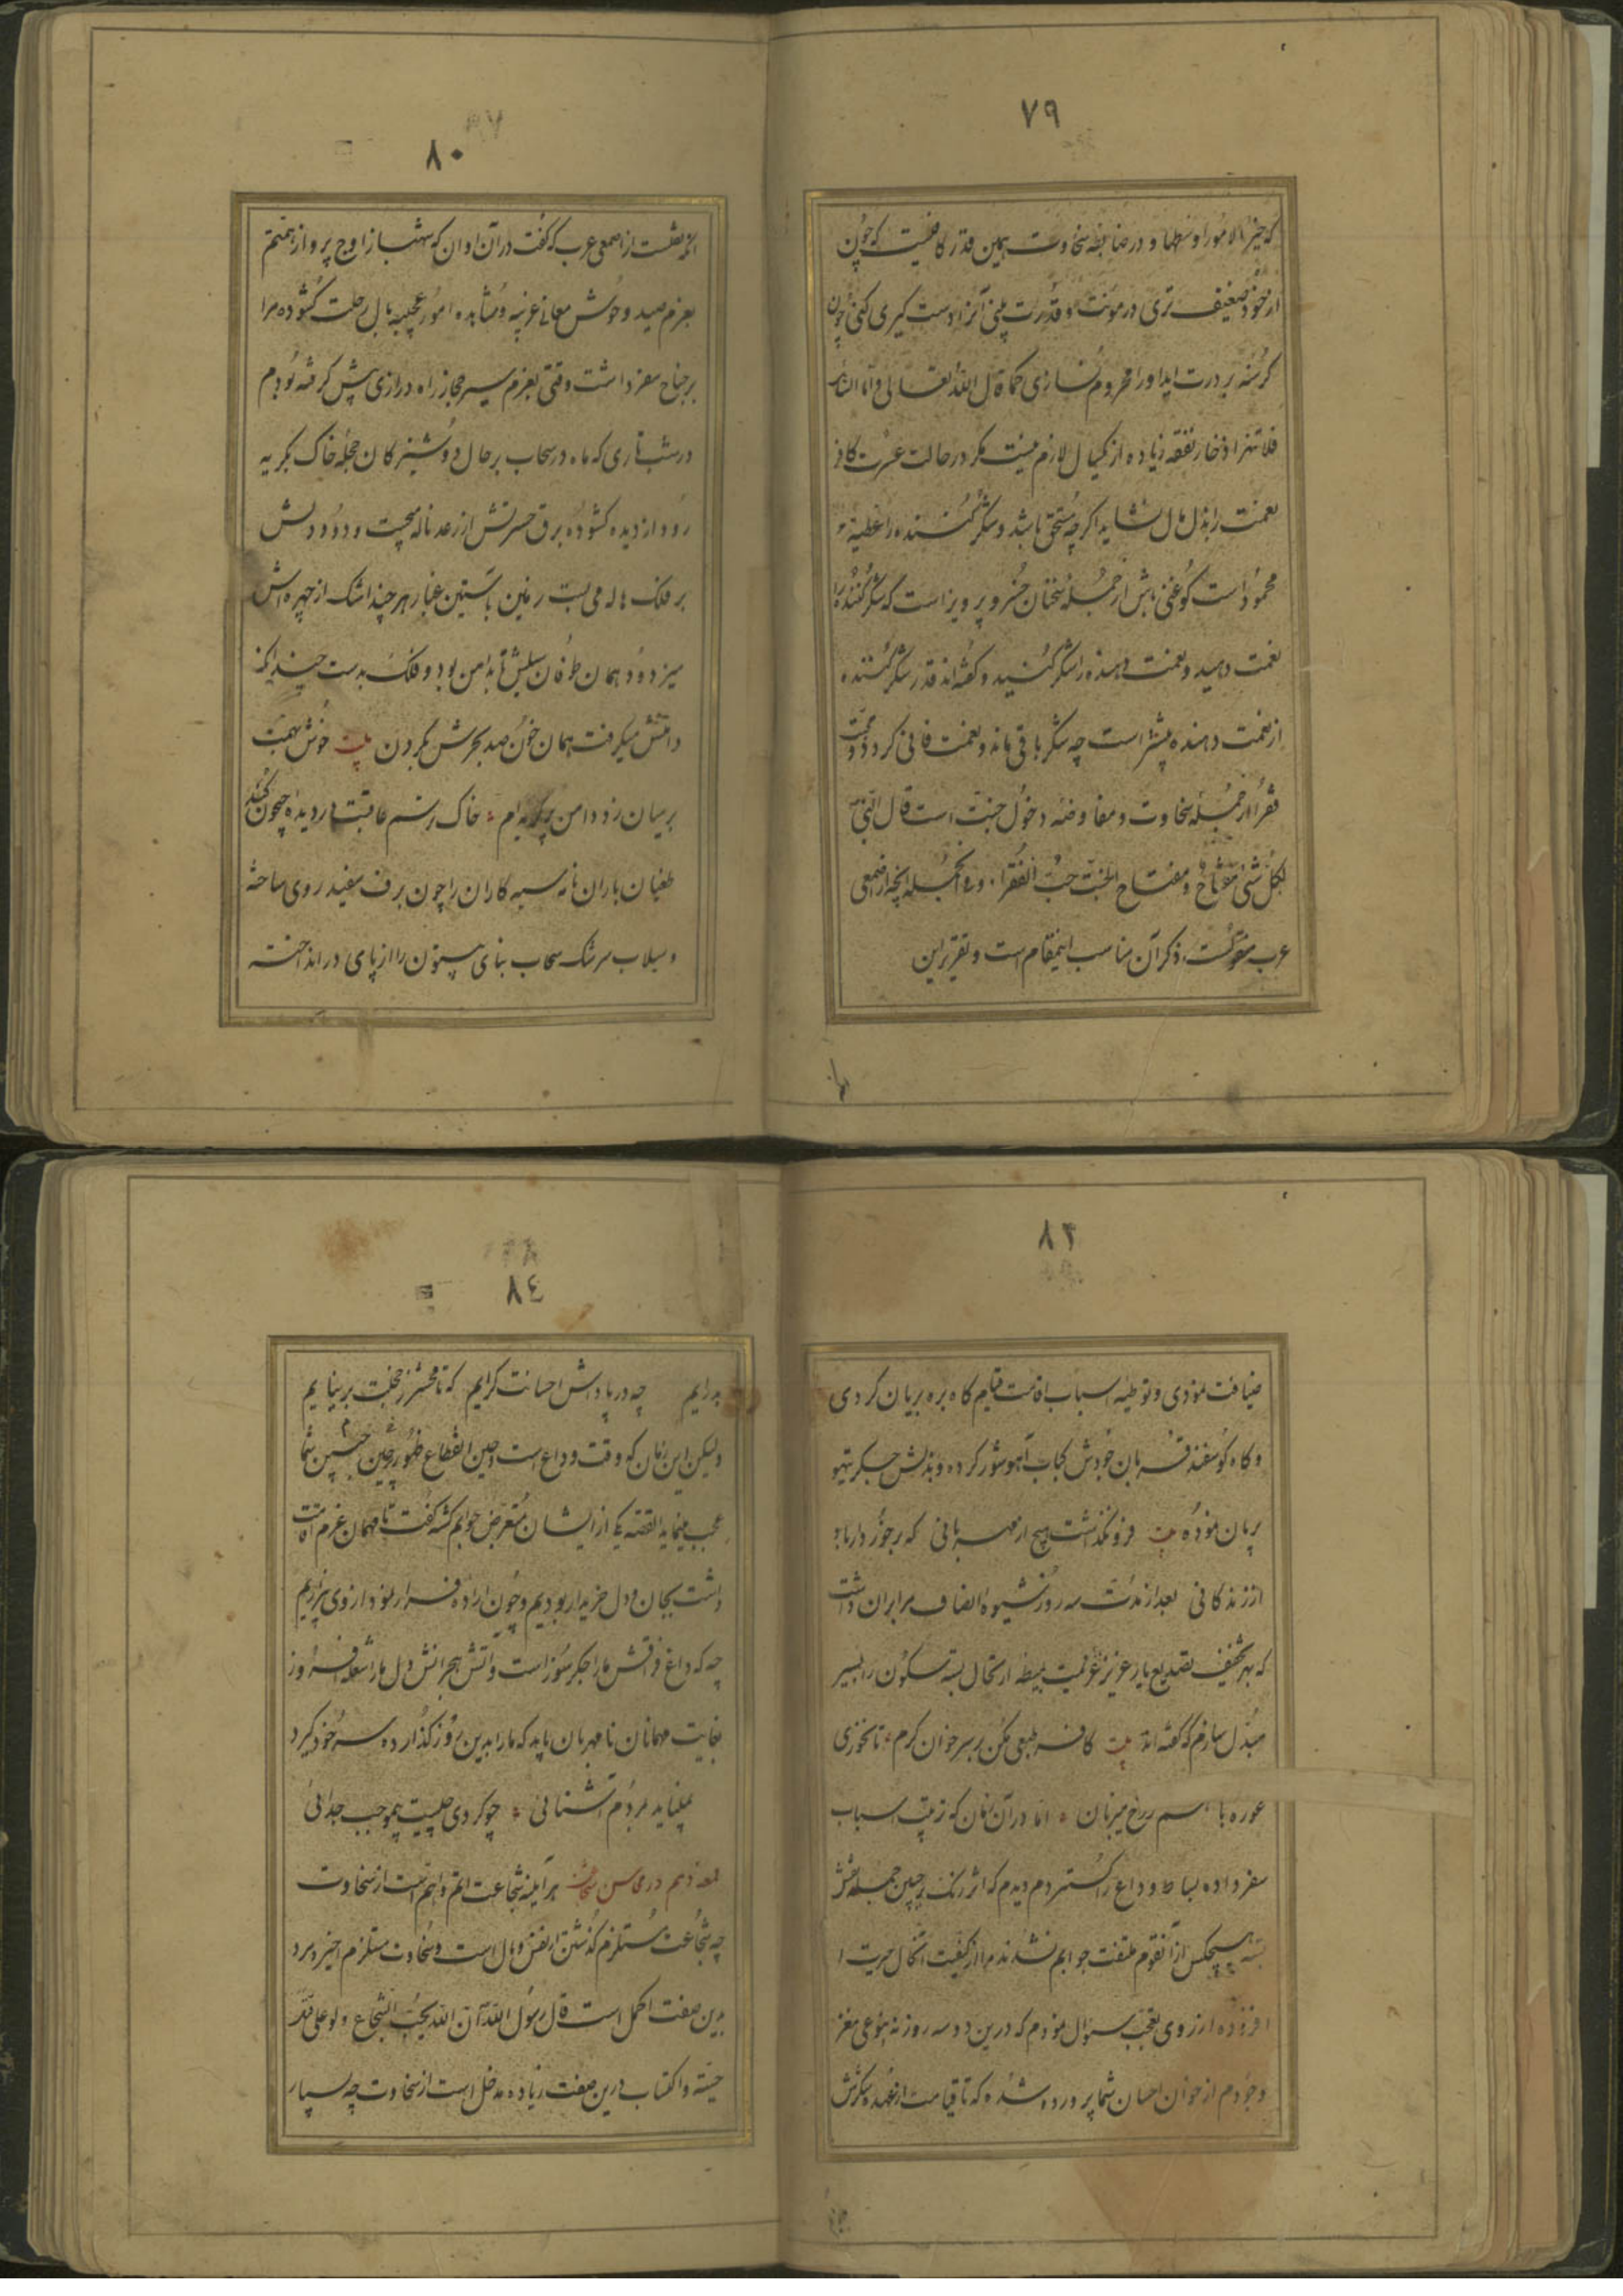 ٧٩
که خیر الامور اوسطها و در ضابطه سخاوت همین قدر کافیست که چون
از خود ضعیف تری در مونت و قدرت بینی آنرا دست کیری کنی و چون
کرسنه بر درت اید اورا محروم نسازی کما قال الله تعالی و اما السائل
فلا تنهر اذخار نفقه زیاده از یکسال لازم نیست مکر در حالت عسرت کافر
نعمت را بذل مال نشاید اکرچه مستحق باشد و شکر کننده را عطیه
محمود است کو غنی باش از جمله سخنان خسرو پرویز است که شکر کننده را
نعمت دهید و نعمت دهنده را شکر کنید و کفته اند قدر شکر کننده
از نعمت دهنده بیشتر است چه شکر باقی ماند و نعمت فانی کردد و محبت
فقرا از جمله سخاوت و مفاوضه دخول جنت است قال النبی
لکل شئ مفتاح و مفتاح الجنت حب الفقراء و من الجمله انچه از اصمعی
عرب منقولست ذکر آن مناسب اینمقام است و تقریر این
٨٠
از اصمعی عرب که کفت در آن اوان که شهباز اوج پرواز همتم
بعزم صید وحوش معانی غریبه و مشاهده امور عجیبه بال رحلت کشوده مرا
بر جناح سفر داشت وقتی بعزم سیر حجاز راه درازی پیش کرفته بودم
در شب تاری که ماه در سحاب بر حال دوشیزکان حجله خاک بکریه
رود از دیده کشوده برق حسرتش از رعد ناله میجست و دود دلش
بر فلک هاله می بست زمین باستین غبار هر چند اشک از چهره اش
میزدود همان طوفان سیلش تا بدامن بود و فلک بدست
دامنش میکرفت همان خون صد بحرش بکردن بیت خوش بهمت
بر میان زد دامن پر کریه ام خاک
طغیان باران نامه سیه کاران را چون برف سفید روی ساخته
و سیلاب سرشک سحاب بنای بیستون را از پای در انداخته
٨٣
ضیافت نمودی و توطیه اسباب اقامت قیام کاه بره بریان کردی
و کاه کوسفند قربان خودش کباب آهو شور کرده و بذلش جکر تیهو
بریان نموده بیت فرو نکذاشت هیچ از مهربانی که برخوردار باد
از زندکانی بعد از مدت سه روز شیوه انصاف مرا بران داشت
که بهر تخفیف تصدیع یار عزیز عزیمت بسته ارتحال بسته سکون را بسیر
مبدل سازم که کفته اند بیت کافر طبعی مکن بر سر خوان کرم تا نخوری
غوره با رخ میزبان اما در آن زمان که ترتیب اسباب
سفر داده بساط وداع را کستردم دیدم که اثر رنک بر جبین جمله نقش
بسته هیچکس از آنقوم ملتفت جوابم نشدند مرا از کیفیت اینحال حیرت
افزوده از روی تعجب سوال نمودم که درین دو سه روزه بنوعی مغز
وجودم از خوان احسان شما پرورده شده که تا قیامت از عهده شکرش
٨٤
بدرایم چه در پاداش احسانت کرایم که تا محشر ز خجلت بر نیایم
ولیکن این زمان که وقت وداع است و حین انقطاع ظهور چین جبین شما
عجب مینماید القصه یکی از ایشان متعرض جوابم کشته کفت تا مهمان عزم اقامت
داشت بجان و دل خریدار بودیم و چون اراده فرار نمود از وی بیزاریم
چه که داغ فراقش ما را جکرسوز است و آتش هجرانش دل ما را شعله افروز
بغایت مهمانان نامهربان باید که ما را بدین روز کذارده سر خود کیرد
نمیباید بمردم آشنائی چو کردی چیست موجب جدائی
لمعه دهم در محاسن شجاعت هر آینه شجاعت اتم و اهم است از سخاوت
چه شجاعت مستلزم کذشتن از نفس و مال است و سخاوت مستلزم اخیر و مرد
بدین صفت اکمل است قال رسول الله ان الله یحب الشجاع و لو علی قتل
حیة و اکتساب درین صفت زیاده مدخل است از سخاوت چه بسیار